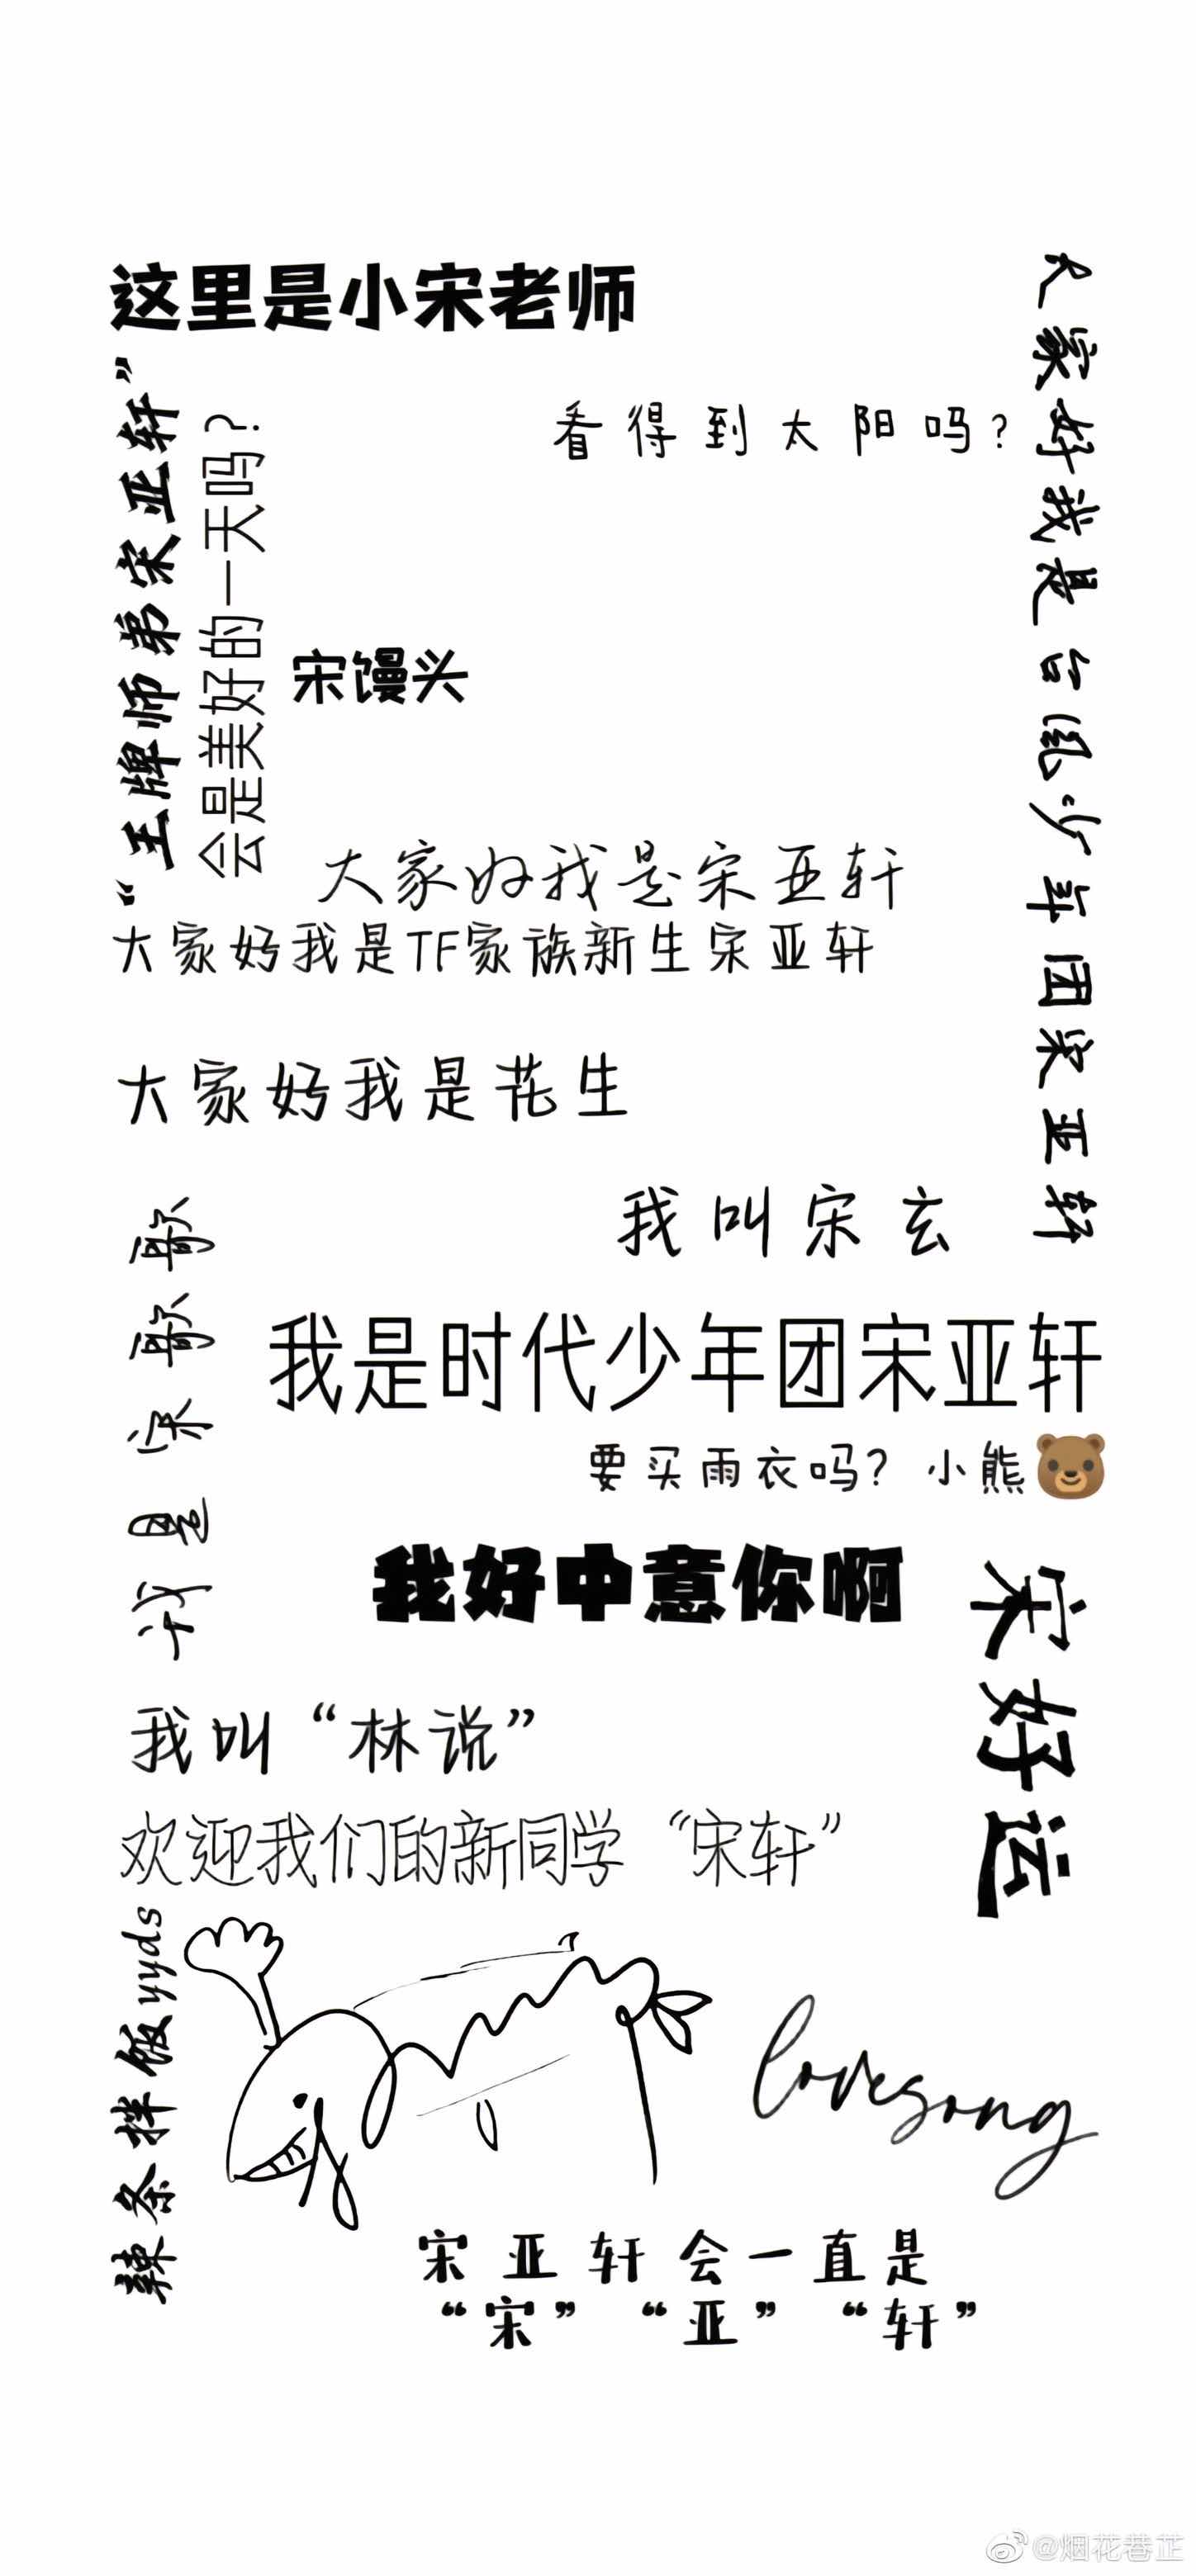 这里是小宋老师
大家好我是台风少年团宋亚轩
“王牌师弟宋亚轩”
会是美好的一天吗？
看得到太阳吗？
宋馒头
大家好我是宋亚轩
大家好我是TF家族新生宋亚轩
大家好我是花生
我叫宋玄
我是宋歌歌
我是时代少年团宋亚轩
要买雨衣吗？小熊🐻
我好中意你啊
宋好运
我叫“林说”
欢迎我们的新同学“宋轩”
辣条拌饭yyds
lovesong
宋亚轩会一直是
“宋”“亚”“轩”
@烟花巷芷